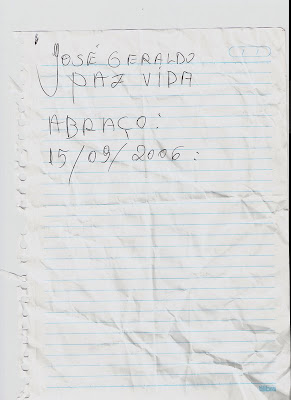 JOSÉ GERALDO
PAZ VIDA
ABRAÇO:
15/09/2006: